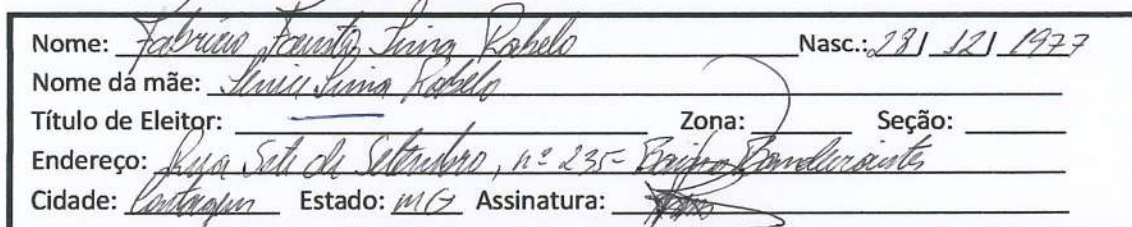 Nome: Fabrício Fausto Lima Rabelo Nasc.: 28/ 12/ 1977
Nome da mãe: Lima Rabelo
Título de Eleitor: Zona: Seção:
Endereço: Rua Sete de Setembro, nº 235 - Bairro Bandeirantes
Cidade: Contagem Estado: MG Assinatura: